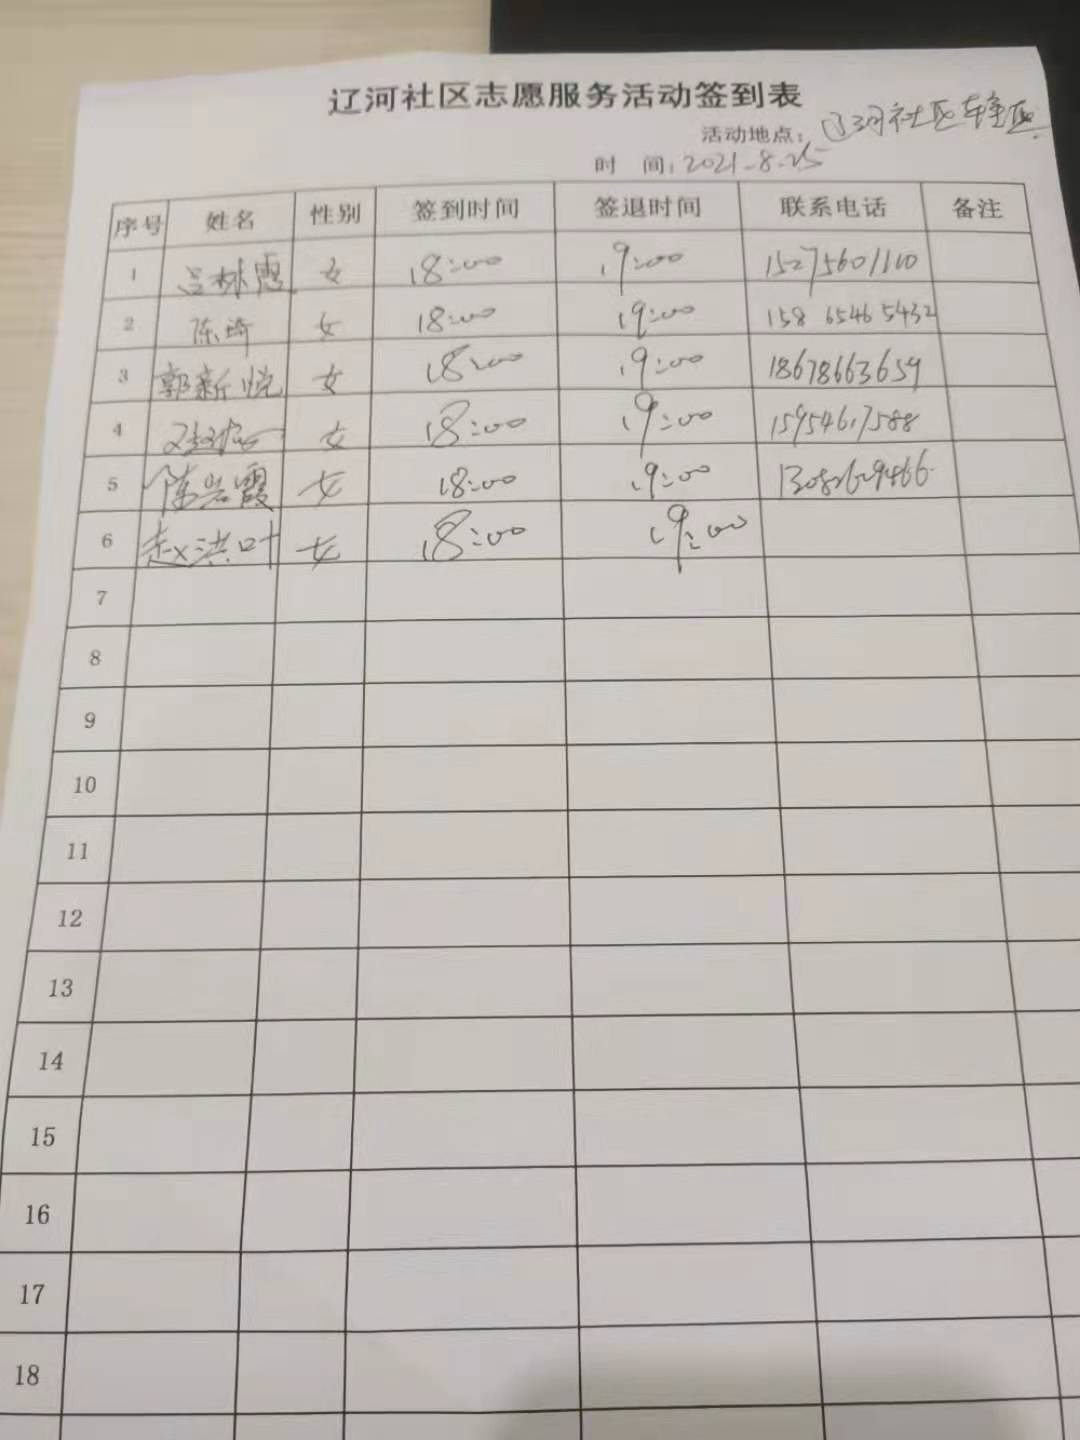 辽河社区志愿服务活动签到表
活动地点：辽河社区辖区
时 间：2021.8.25
序号 姓名 性别 签到时间 签退时间 联系电话 备注
1 吕林霞 女 18:00 19:00
2 陈琦 女 18:00 19:00 158 6546 5432
3 郭新悦 女 18:00 19:00 18678663659
4 女 18:00 19:00 15954617588
5 陈岩霞 女 18:00 19:00
6 赵洪叶 女 18:00 19:00
7
8
9
10
11
12
13
14
15
16
17
18